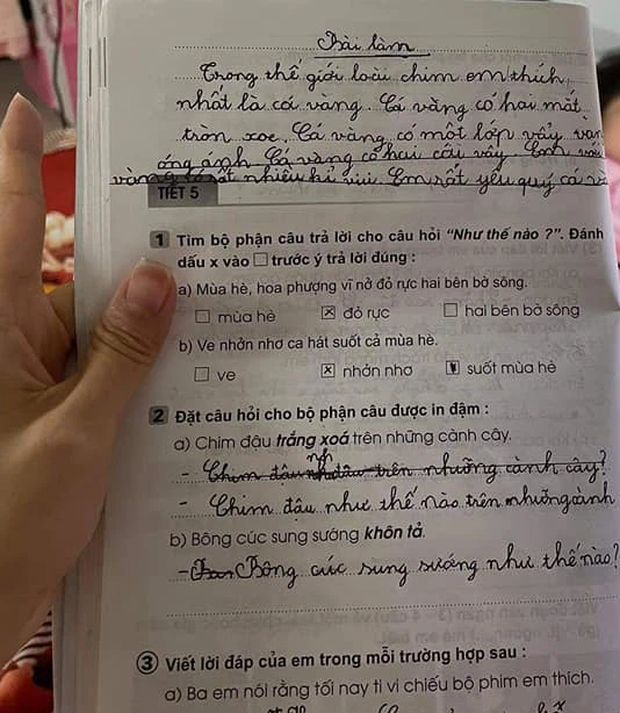 Bài làm
Trong thế giới loài chim em thích
nhất là cá vàng. Cá vàng có hai mắt
tròn xoe, Cá vàng có một lớp vẩy vàn
óng ánh Cá vàng có hai cái vây Em
nhiều khi vui. Em rất yêu quý cá
TIẾT 5
1 Tìm bộ phận câu trả lời cho câu hỏi “Như thế nào ?”. Đánh
dấu x vào □ trước ý trả lời đúng :
a) Mùa hè, hoa phượng vĩ nở đỏ rực hai bên bờ sông.
□ mùa hè ☒ đỏ rực □ hai bên bờ sông
b) Ve nhởn nhơ ca hát suốt cả mùa hè.
□ ve ☒ nhởn nhơ suốt mùa hè
2 Đặt câu hỏi cho bộ phận câu được in đậm :
a) Chim đậu trắng xoá trên những cành cây.
- Chim đậu trên những cành cây?
- Chim đậu như thế nào trên những cành
b) Bông cúc sung sướng khôn tả.
- Bông cúc sung sướng như thế nào?
3 Viết lời đáp của em trong mỗi trường hợp sau :
a) Ba em nói rằng tối nay ti vi chiếu bộ phim em thích.